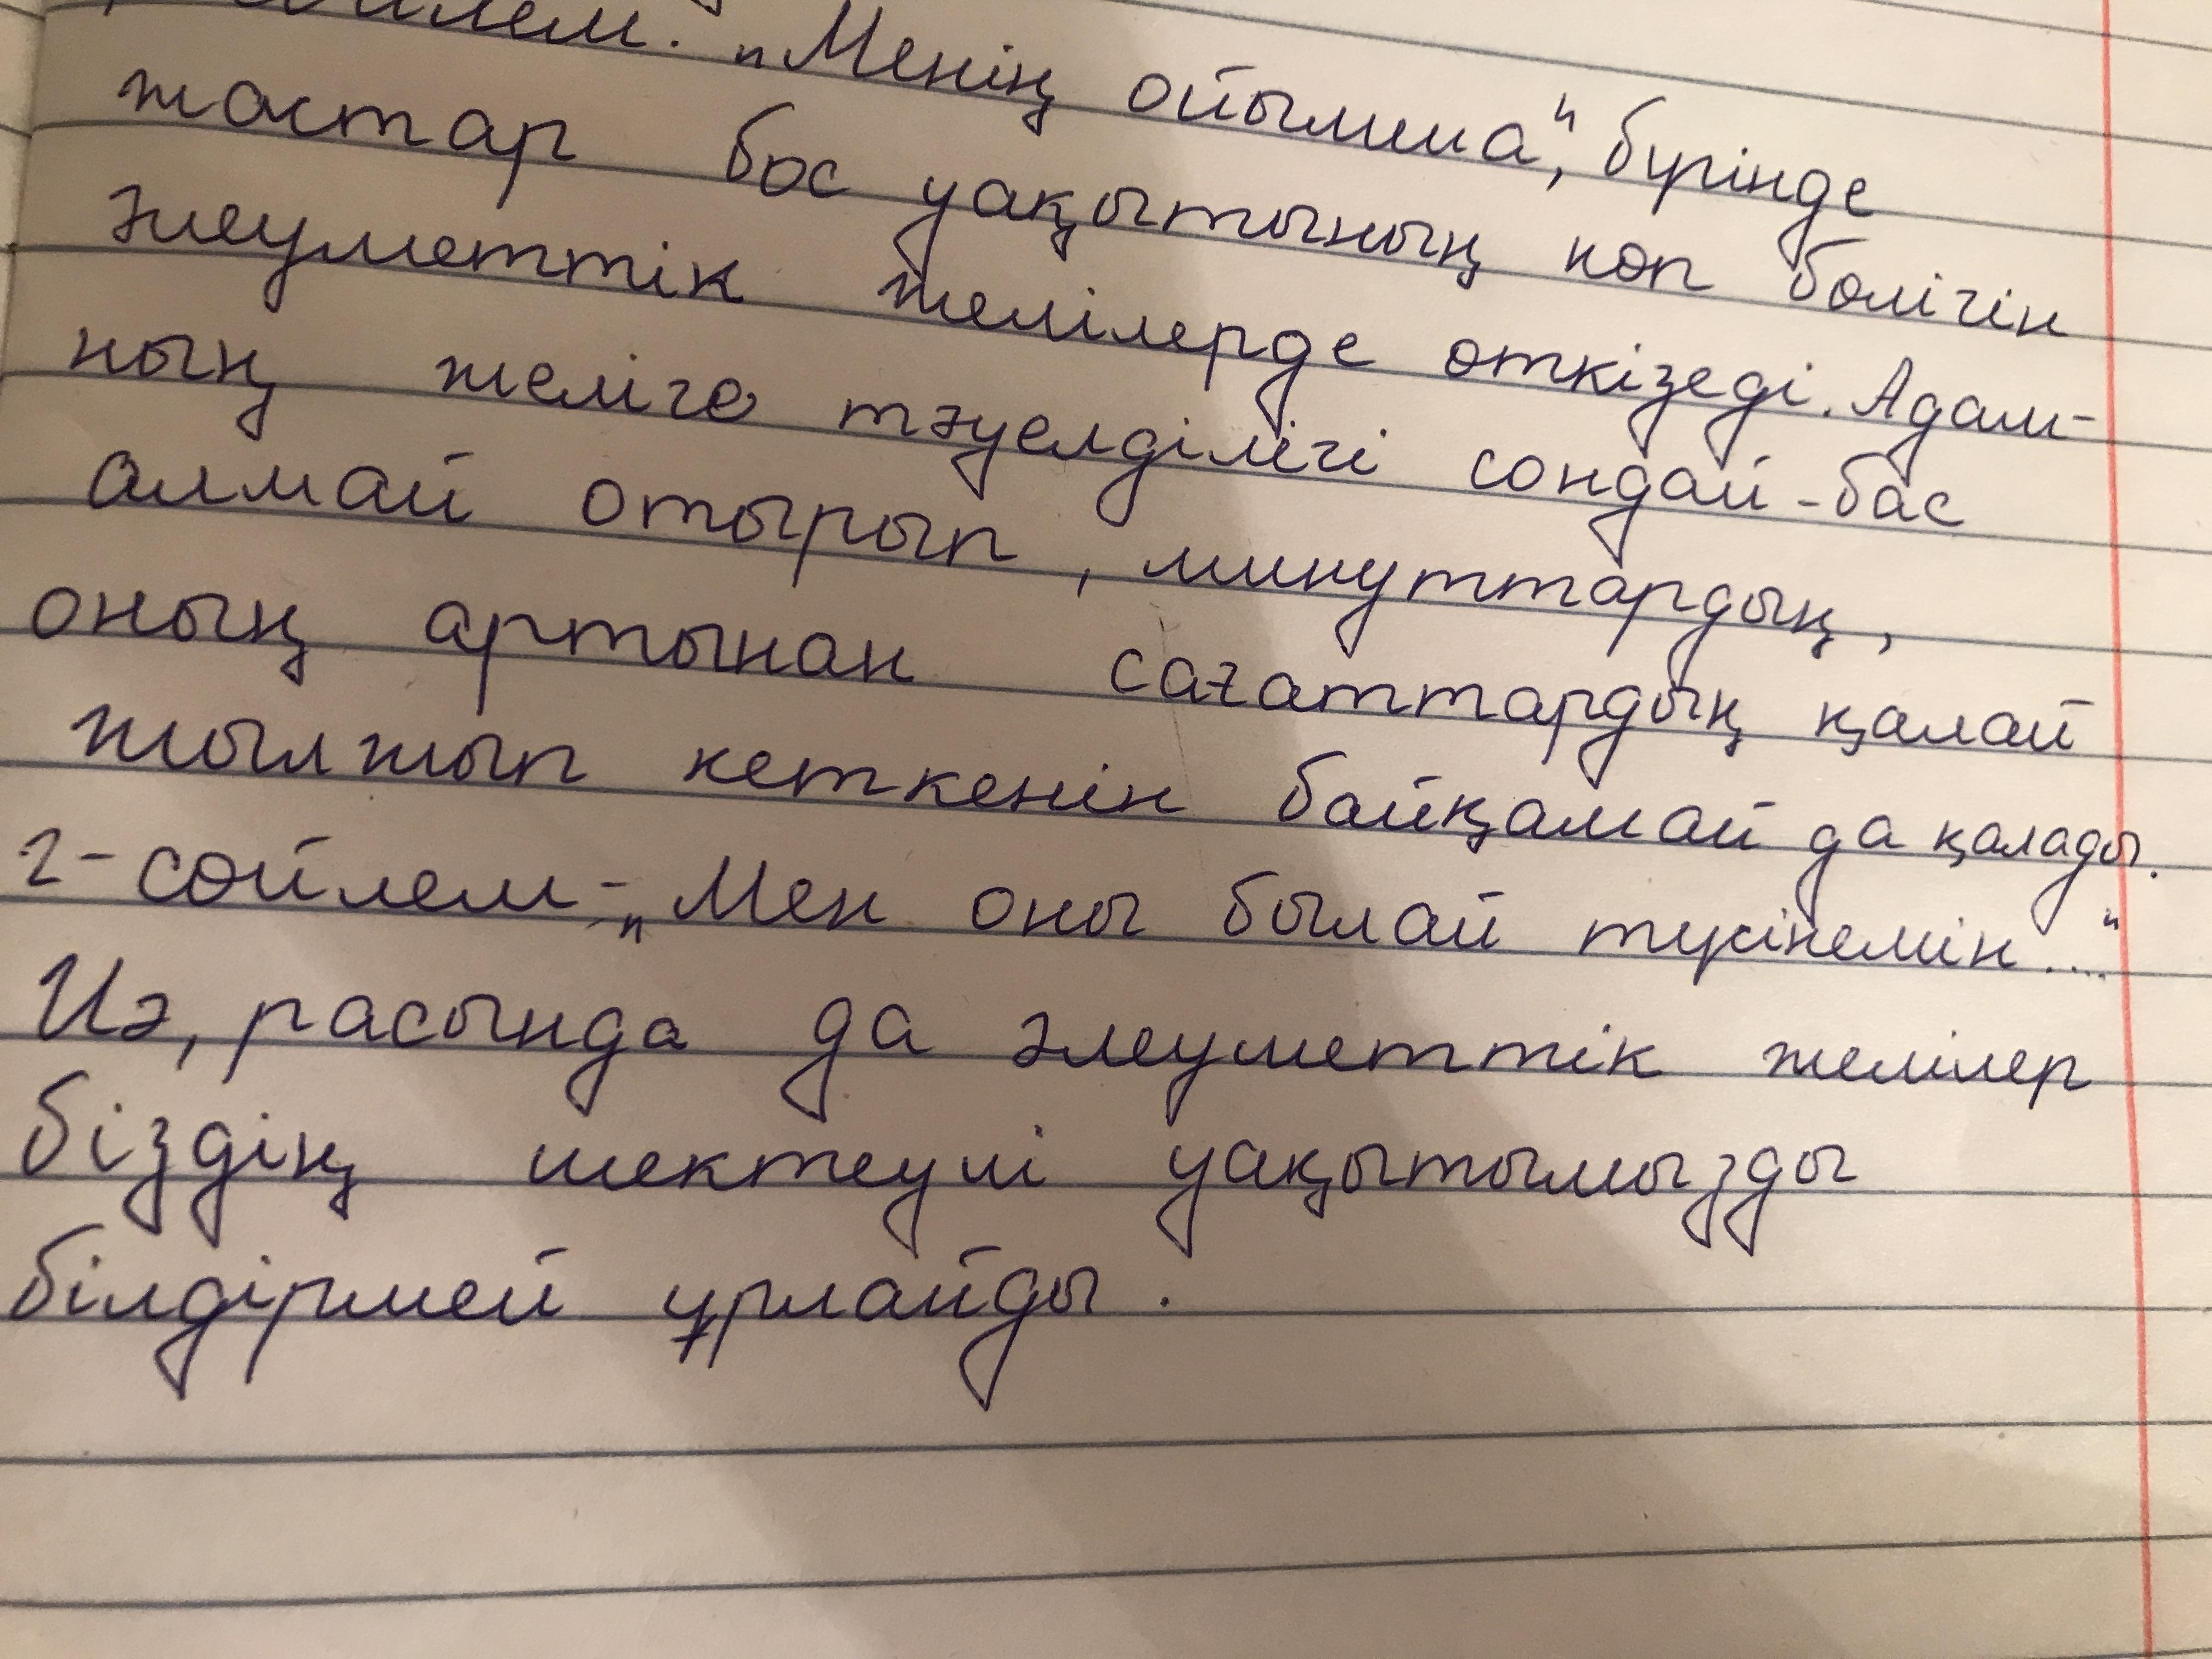 "Менің ойымша", бүгінде
жастар бос уақытының көп бөлігін
әлеуметтік желілерде өткізеді. Адам-
ның желіге тәуелділігі сондай-бас
алмай отырып, минуттардың,
оның артынан сағаттардың қалай
жылжып кеткенін байқамай да қалады.
2-сөйлем-"Мен оны былай түсінемін...."
Иә, расында да әлеуметтік желілер
біздің шектеулі уақытымызды
білдірмей ұрлайды.